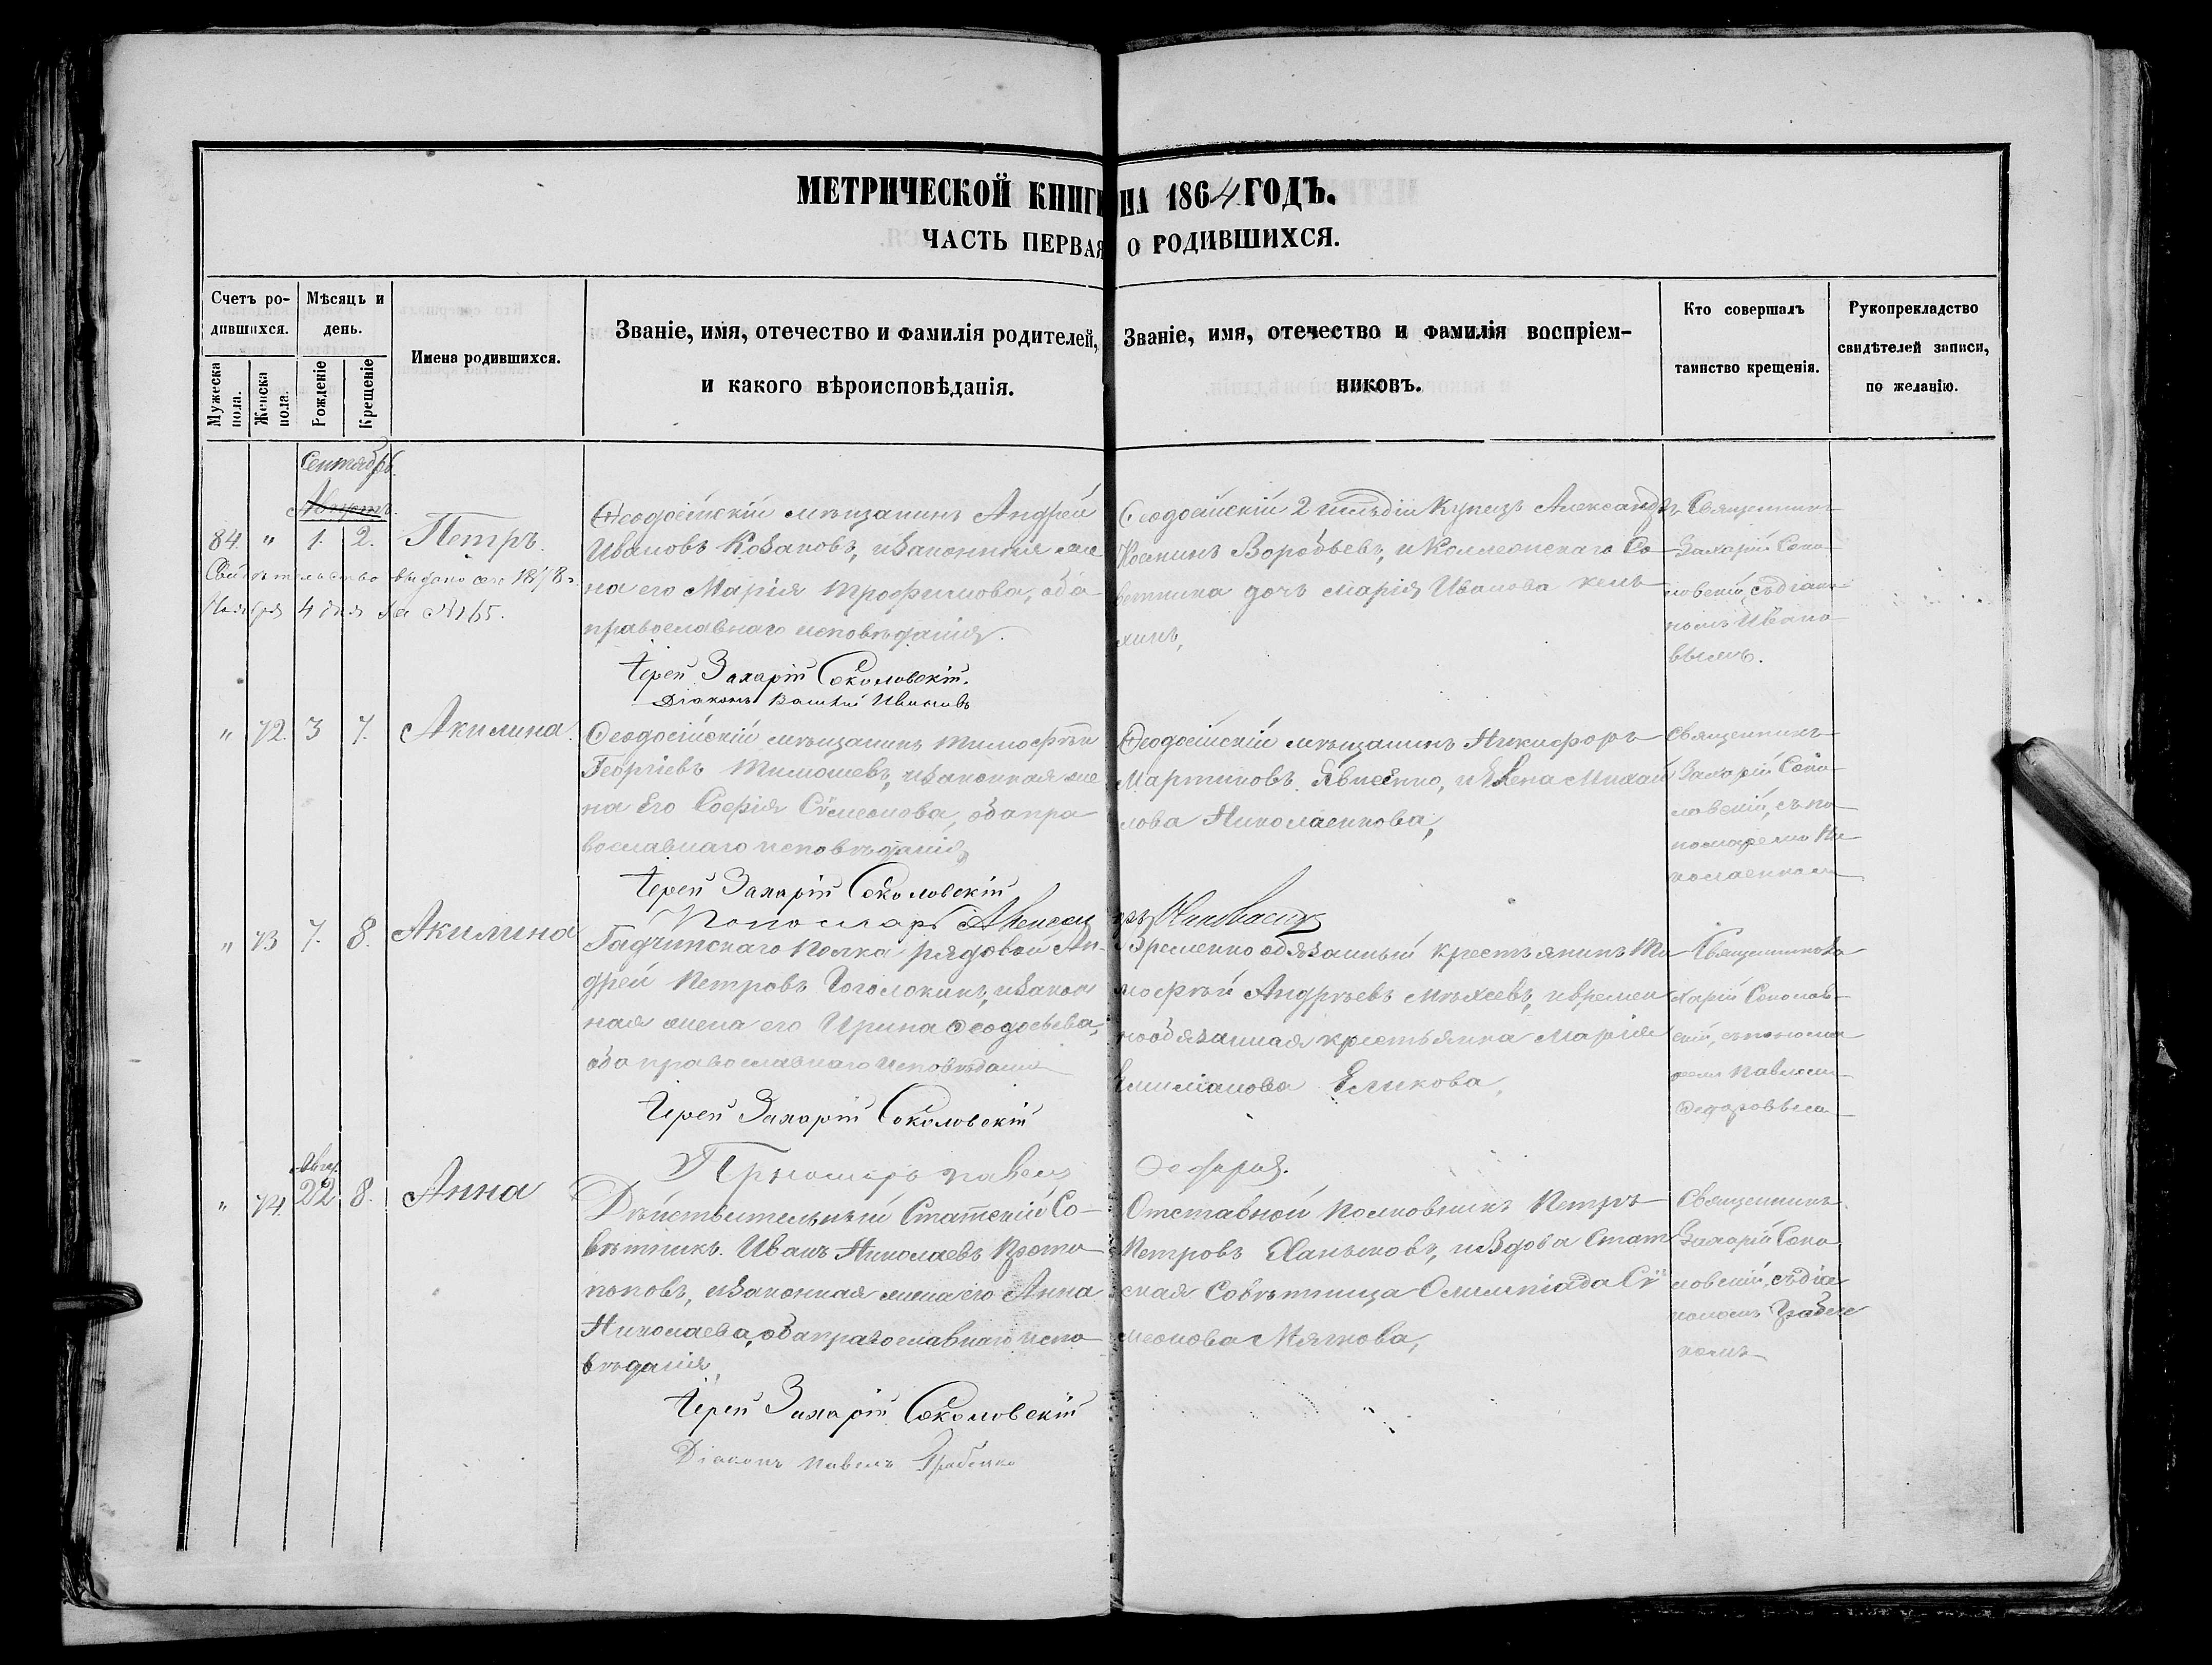 МЕТРИЧЕСКОЙ КНИГИ НА 1864 ГОДЪ.
ЧАСТЬ ПЕРВАЯ О РОДИВШИХСЯ.
Счетъ родившихся.
Мужеска пола.
Женска пола.
Мѣсяцъ и день.
Рожденіе
Крещеніе
Имена родившихся.
Званіе, имя, отечество и фамилія родителей,
и какого вѣроисповѣданія.
Званіе, имя, отечество и фамилія воспріем-
никовъ.
Кто совершалъ
таинство крещенія.
Рукоприкладство
свидѣтелей записи,
по желанію.
Сентябрь.
Августъ.
84. " 1. 2. Петръ.
Свидѣтельство выдано
Ноября 4 дня за № 165.
Ѳеодосійскій мѣщанинъ Андрей
Ивановъ Козаковъ, и законная же
на его Марія Трофимова, оба
православнаго исповѣданія.
Іерей Захарій Соколовскій.
Діаконъ Василій Ивановъ
Ѳеодосійскій 2 гильдіи Купецъ Александръ
Воробьевъ, и Коллежскаго Со
вѣтника дочь Марія Иванова
Священникъ
Захарій Соко
ловскій, съ діако
номъ Ивано
вымъ.
" 72. 3 7. Акилина.
Ѳеодосійскій мѣщанинъ Тимофѣй
Георгіевъ Тимошевъ, и законная же
на Его Софія Сѵмеонова, оба пра
вославнаго исповѣданія,
Іерей Захарій Соколовскій
Ѳеодосійскій мѣщанинъ Никифоръ
Мартиновъ Явисенко, и Елена Михай
лова Николаенкова,
Священникъ
Захарій Соко
ловскій, съ по
номаремъ Ни
колаенком
" 73 7. 8. Акилина
Гадчинскаго Полка рядовой Ан-
дрей Петровъ Гоголокинъ, и закон
ная жена его Ирина Ѳеодосьева,
оба православнаго исповѣданія
Іерей Захарій Соколовскій
Временно обязанный крестьянинъ Ти
мофѣй Андрѣевъ Мѣхеевъ, и времен
но обязанная крестьянка Марія
Емиліанова Еликова,
Священникъ За
харій Соколов-
скій, съ понома
ремъ Павломъ
Ѳедоровымъ
Авгу.
" 74. 22 8. Анна
Дѣйствительный Статскій Со-
вѣтникъ Иванъ Николаевъ Прото
поповъ, и законная жена его Анна
Николаева, оба православнаго испо-
вѣданія,
Іерей Захарій Соколовскій
Діаконъ Павелъ Грабенко
Отставной Полковникъ Петръ
Петровъ Ханыковъ, и Вдова Стат
ская Совѣтница Олимпіада Сѵ
меонова Мягкова,
Священникъ
Захарій Соко
ловскій, съ діа
кономъ Грабен
комъ